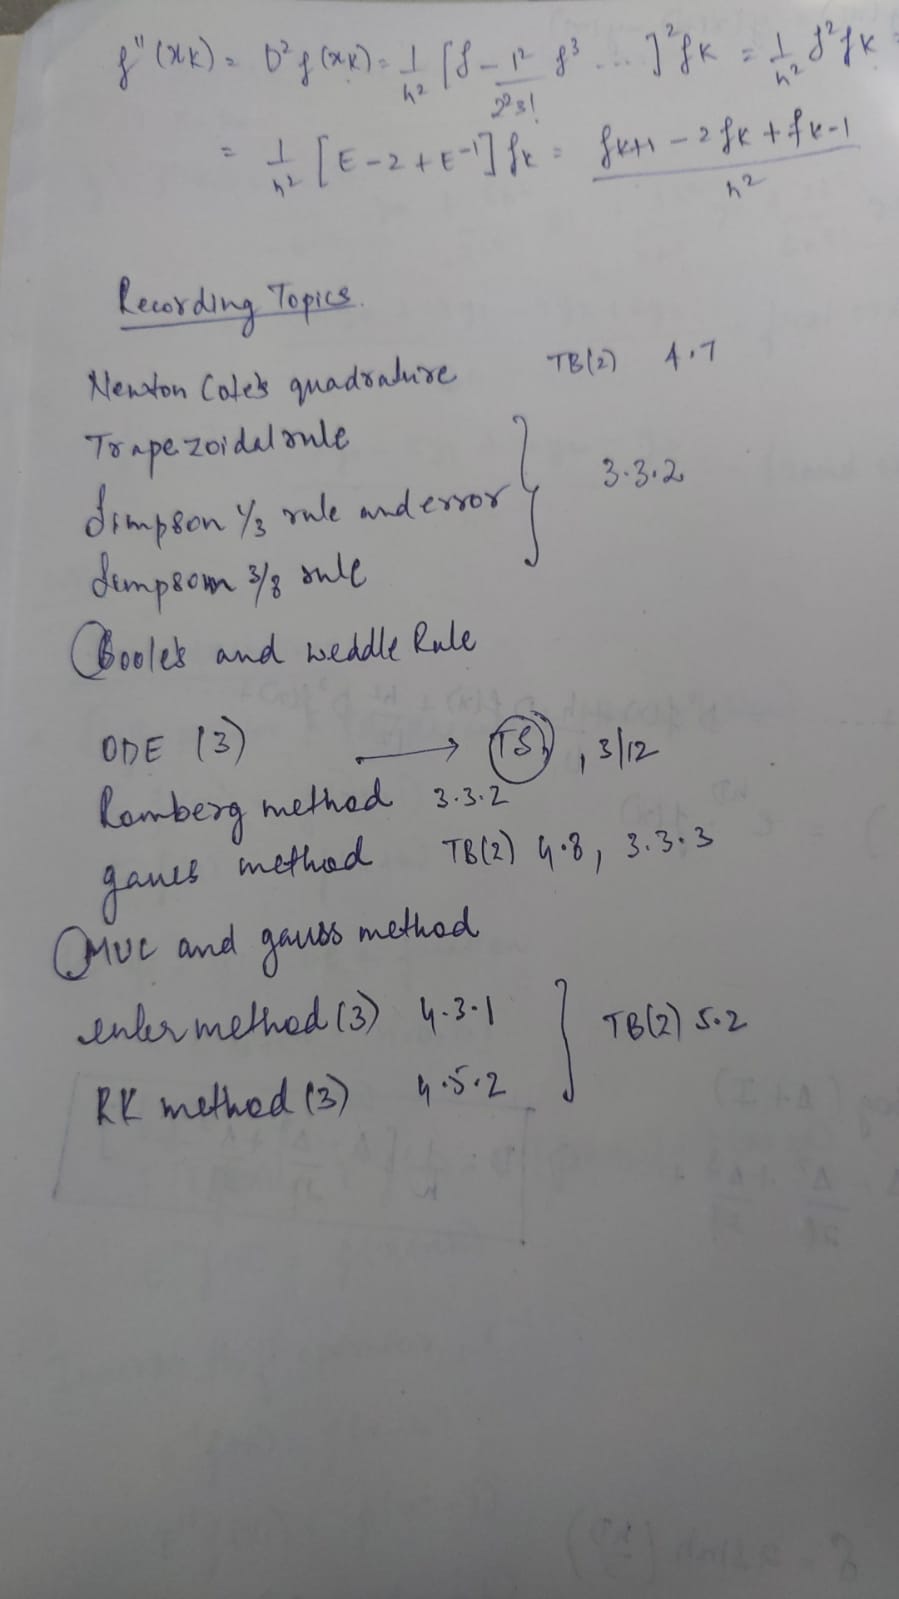 f''(xk) = D²f(xk) = 1/h² [δ - 1²/2²3! δ³ ... ]² fk = 1/h² δ² fk =
= 1/h² [E - 2 + E⁻¹] fk = fk+1 - 2fk + fk-1 / h²
Recording Topics.
Newton Cote's quadrature TB(2) 4.7
Trapezoidal rule
Simpson 1/3 rule and error } 3.3.2
Simpsom 3/8 rule
Boole's and weddle Rule
ODE (3) → TS , 3/12
Romberg method 3.3.2
gauss method TB(2) 4.8, 3.3.3
MUC and gauss method
euler method (3) 4.3.1 } TB(2) 5.2
RK method (3) 4.5.2